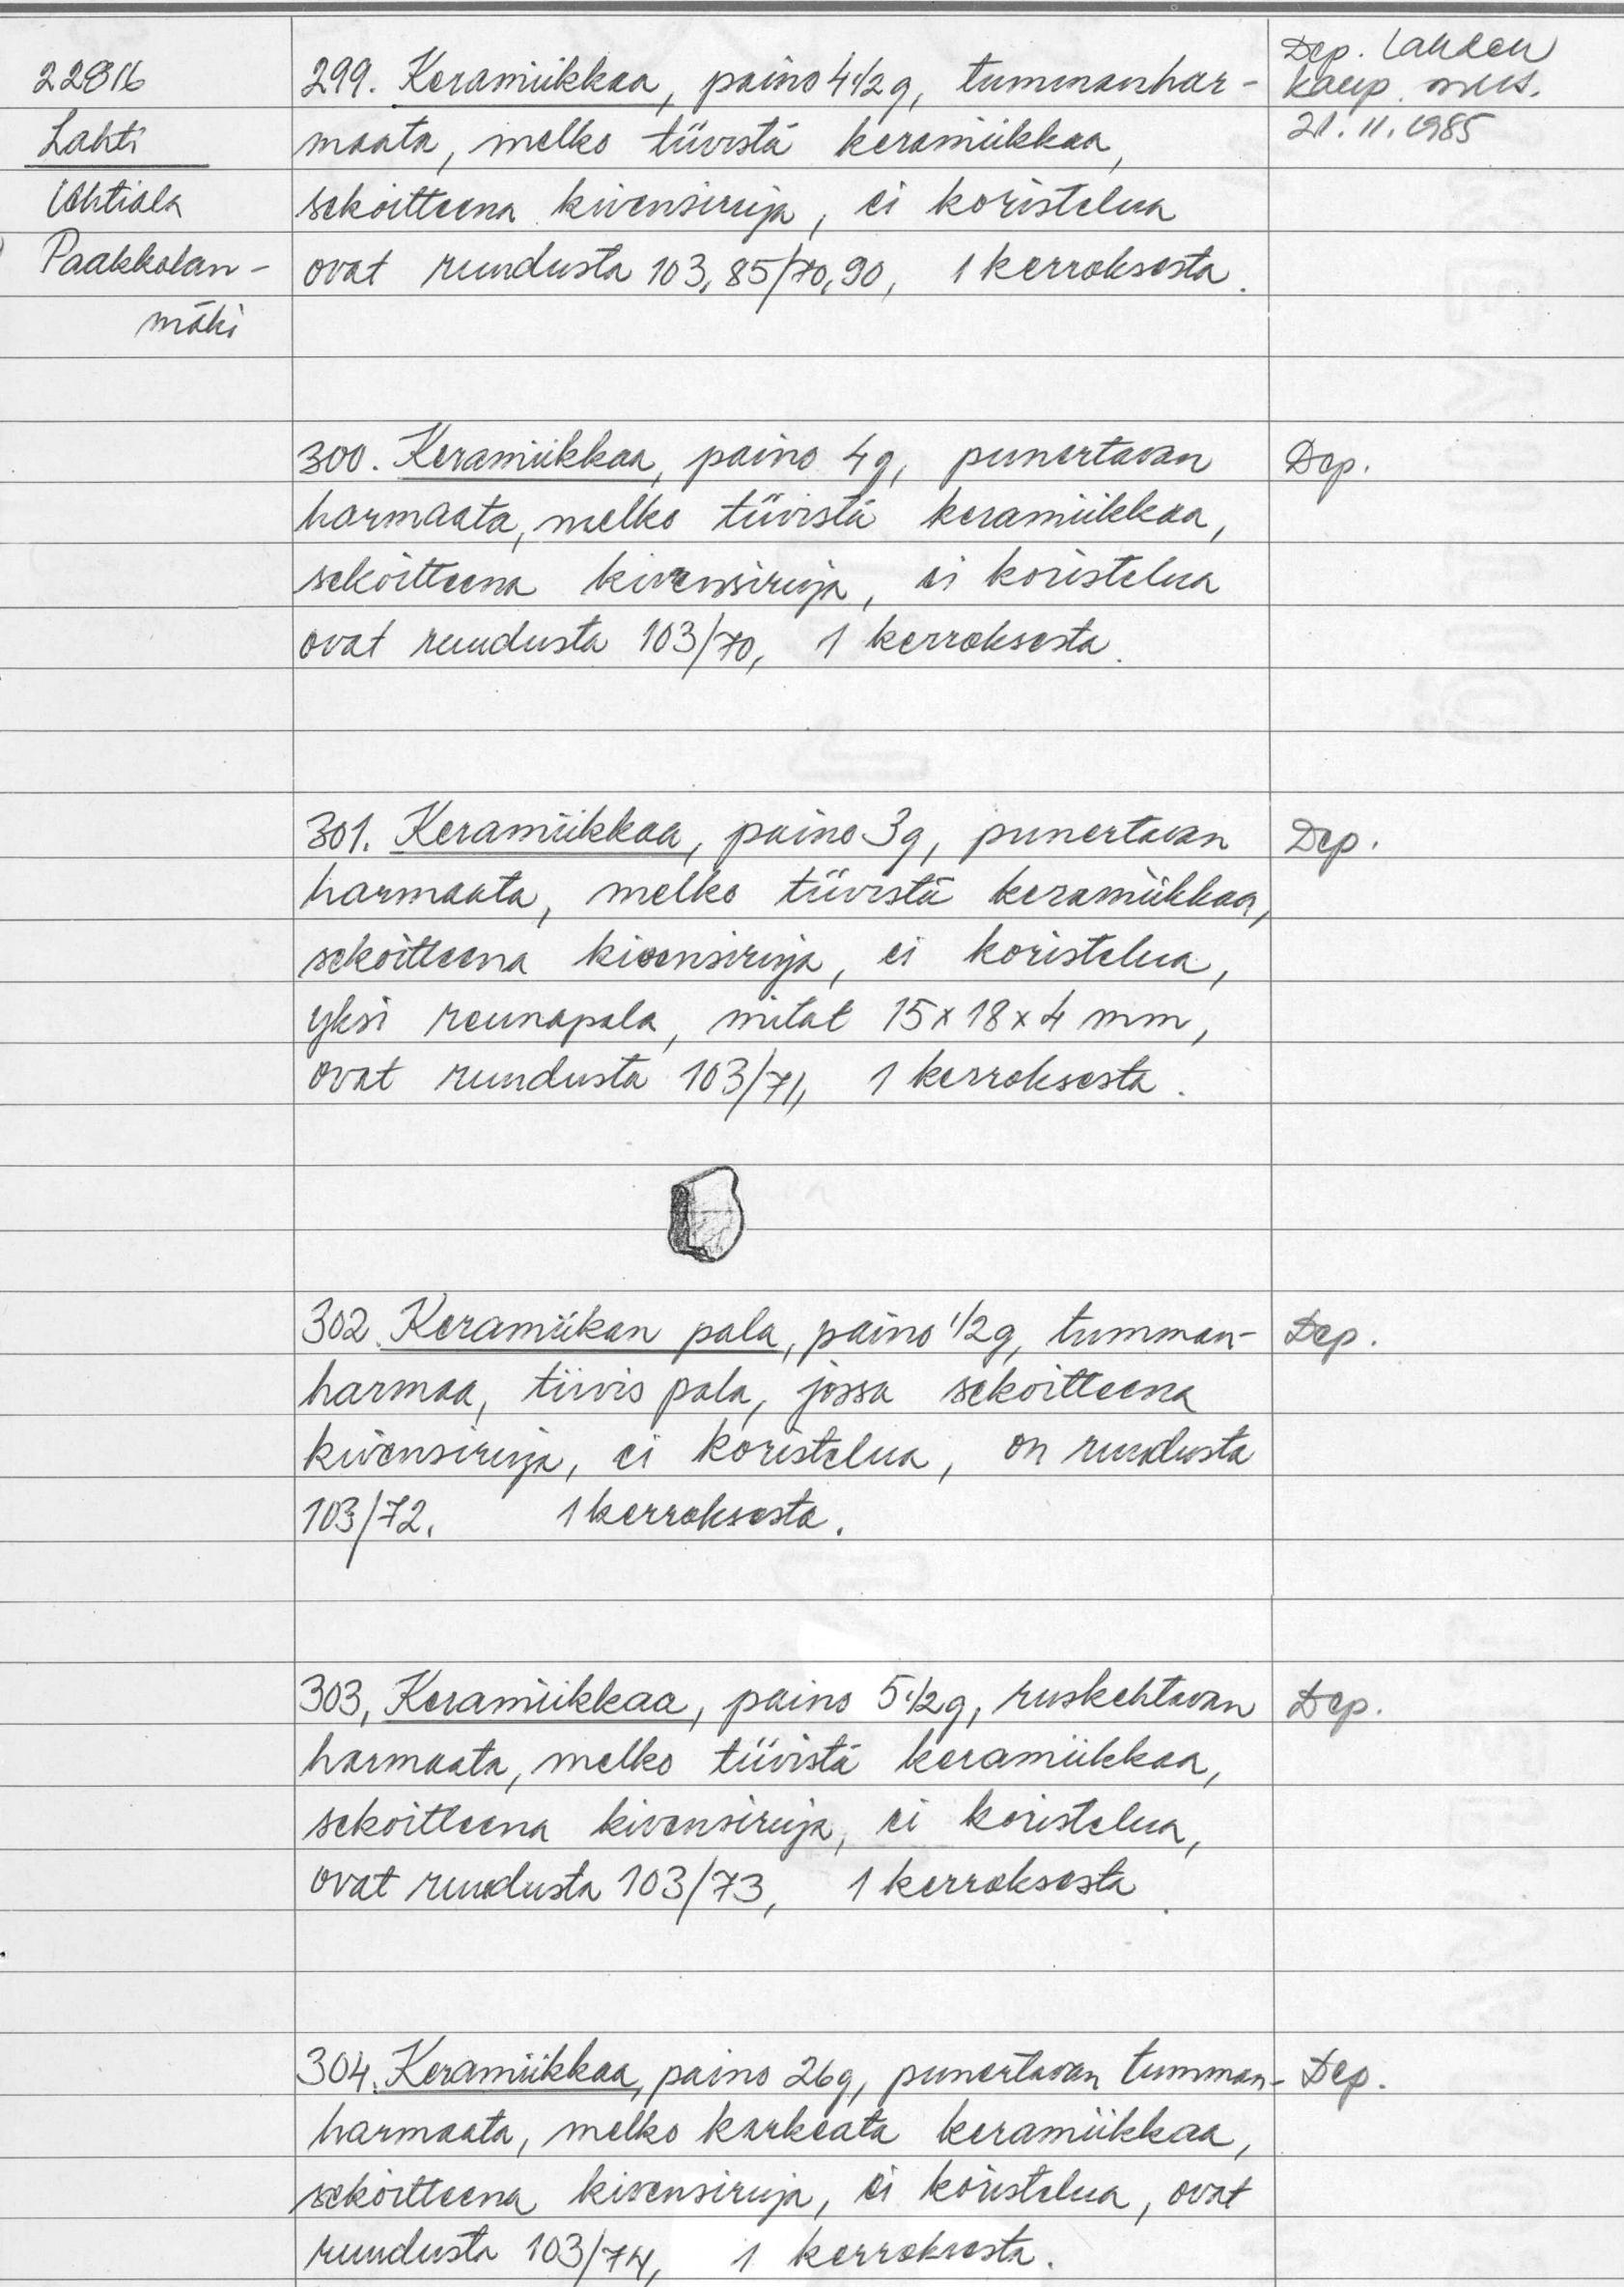 22816
Lahti
Ahtiala
Paakkolan-
mäki
299. Keramiikkaa, paino 4 1/2 g, tummanhar-
maata, melko tiivistä keramiikkaa,
sekoitteena kivensiruja, ei koristelua
ovat ruudusta 103,85/70,90, 1 kerroksesta.
Dep. Lahden
kaup. mus.
21.11.1985
300. Keramiikkaa, paino 4g, punertavan
harmaata, melko tiivistä keramiikkaa,
sekoitteena kivensiruja, ei koristelua
ovat ruudusta 103/70, 1 kerroksesta.
Dep.
301. Keramiikkaa, paino 3g, punertavan
harmaata, melko tiivistä keramiikkaa,
sekoitteena kivensiruja, ei koristelua,
yksi reunapala, mitat 15x18x4 mm,
ovat ruudusta 103/71, 1 kerroksesta.
Dep.
302. Keramiikan pala, paino 1/2g, tumman-
harmaa, tiivis pala, jossa sekoitteena
kivensiruja, ei koristelua, on ruudusta
103/72. 1 kerroksesta.
Dep.
303, Keramiikkaa, paino 5 1/2g, ruskehtavan
harmaata, melko tiivistä keramiikkaa,
sekoitteena kivensiruja, ei koristelua,
ovat ruudusta 103/73, 1 kerroksesta.
Dep.
304. Keramiikkaa, paino 26g, punertavan tumman-
harmaata, melko karkeata keramiikkaa,
sekoitteena kivensiruja, ei koristelua, ovat
ruudusta 103/74, 1 kerroksesta.
Dep.